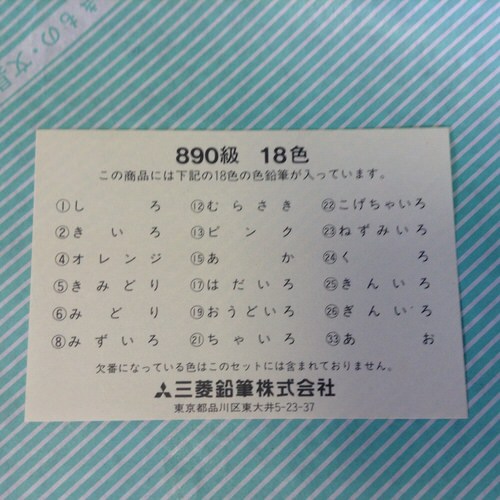 きもの・文具
890級 18色
この商品には下記の18色の色鉛筆が入っています。
①しろ ⑫むらさき ㉒こげちゃいろ
②きいろ ⑬ピンク ㉓ねずみいろ
④オレンジ ⑮あか ㉔くろ
⑤きみどり ⑰はだいろ ㉕きんいろ
⑥みどり ⑲おうどいろ ㉖ぎんいろ
⑧みずいろ ㉑ちゃいろ ㉝あお
欠番になっている色はこのセットには含まれておりません。
三菱鉛筆株式会社
東京都品川区東大井5-23-37